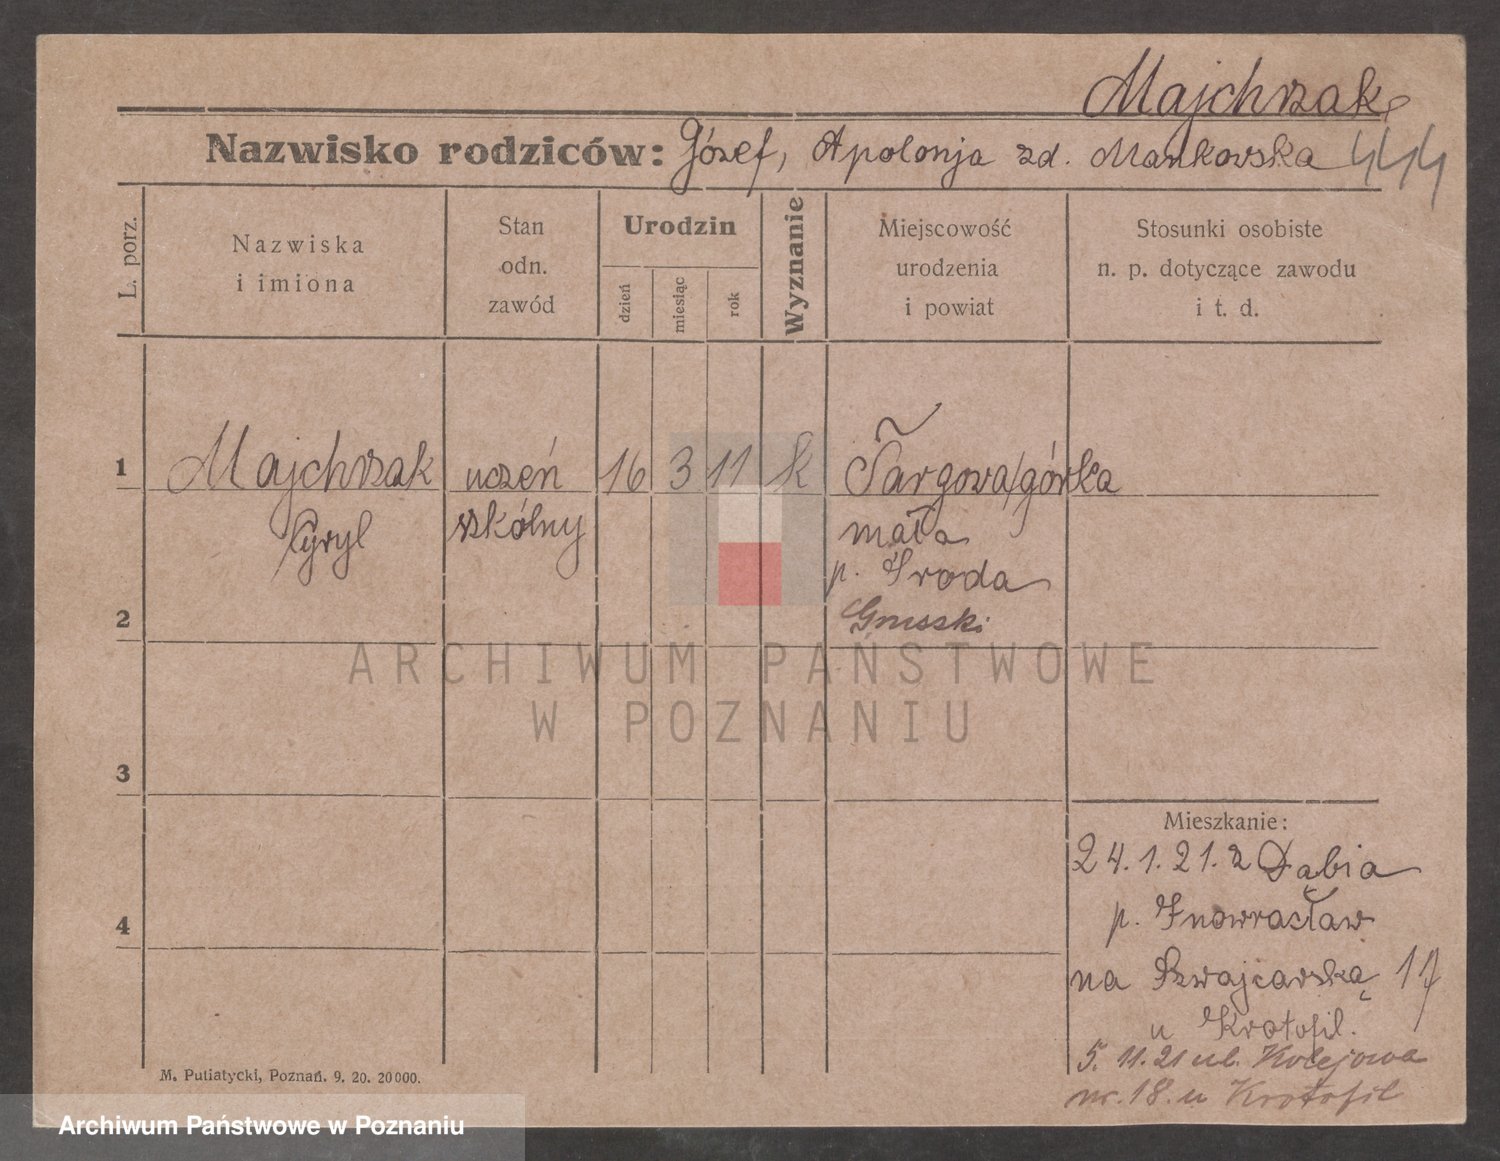 Majchrzak
Nazwisko rodziców: Józef, Apolonja zd. Mankowska 444
L. porz.
Nazwiska
i imiona
Stan
odn.
zawód
Urodzin
dzień
miesiąc
rok
Wyznanie
Miejscowość
urodzenia
i powiat
Stosunki osobiste
n. p. dotyczące zawodu
i t. d.
1 Majchrzak uczeń 16 3 11 k Targowa/górka
Cyryl szkólny mała
p. Środa
2
ARCHIWUM PAŃSTWOWE
W POZNANIU
3
Mieszkanie:
24.1.21. z Dąbia
4 p. Inowrasław
na Szwajcarską 17
u Krotofil.
5. 11. 21 ul. Kolejowa
nr. 18. u Krotofil
M. Putiatycki, Poznań. 9. 20. 20000.
Archiwum Państwowe w Poznaniu